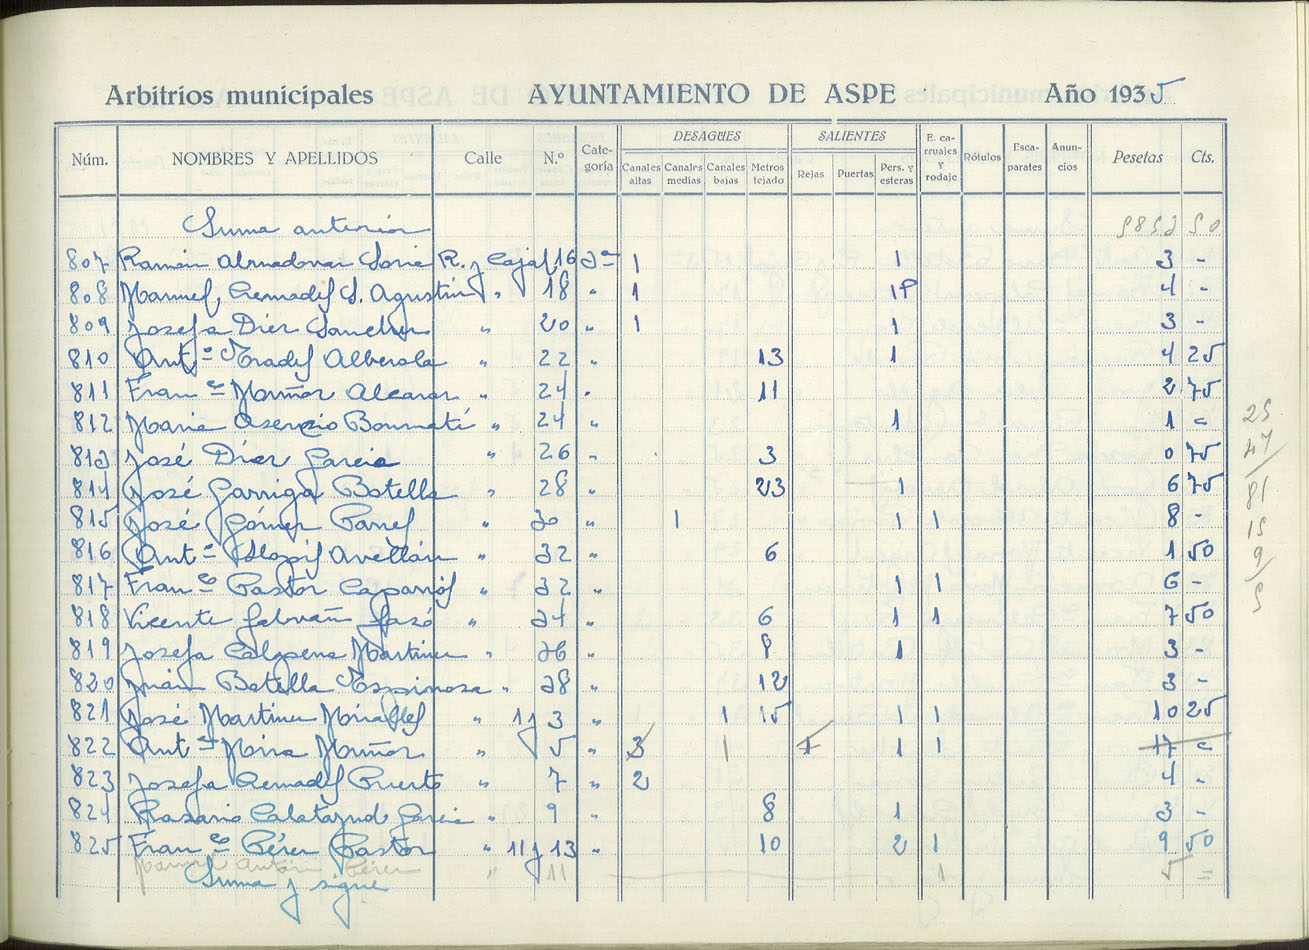 Arbitrios municipales AYUNTAMIENTO DE ASPE Año 1935
DESAGÜES SALIENTES
Núm. NOMBRES Y APELLIDOS Calle N.º Cate-goría Canales altas Canales medias Canales bajas Metros tejado Rejas Puertas Pers. y esteras E. ca-rruajes y rodaje Rótulos Esca-parates Anun-cios Pesetas Cts.
Suma anterior 5852 50
807 Ramón Almodovar Soria R. y Cajal 16 3ª 1 1 3 -
808 Manuel Cremades S. Agustín " 18 " 1 1P 4 -
809 Josefa Díez Sanchez " 20 " 1 1 3 -
810 Antº Pradel Alberola " 22 " 13 1 4 25
811 Franco Muñoz Alcaraz " 24 " 11 2 75
812 Maria Asencio Bonmatí " 24 " 1 1 -
813 José Díez Garcia " 26 " 3 0 75
814 José Garriga Botella " 28 " 23 1 6 75
815 José Gómez " 30 " 1 1 1 8 -
816 Antº Avellán " 32 " 6 1 50
817 Franco Pastor Caparrós " 32 " 1 1 6 -
818 Vicente Galvañ " 34 " 6 1 1 7 50
819 Josefa Calpena Martinez " 36 " 8 1 3 -
820 Juán Botella Espinosa " 38 " 12 3 -
821 José Martinez Miralles " 1 y 3 " 1 15 1 1 10 25
822 Antº Mira Muñoz " 5 " 3 1 1 1 1 17 -
823 Josefa Cremades Puerto " 7 " 2 4 -
824 Rosario Calatayud Garcia " 9 " 8 1 3 -
825 Franco Pérez Pastor " 11 y 13 " 10 2 1 9 50
Antón Pérez " 11 1 5 =
Suma y sigue
25
47
81
15
9
5